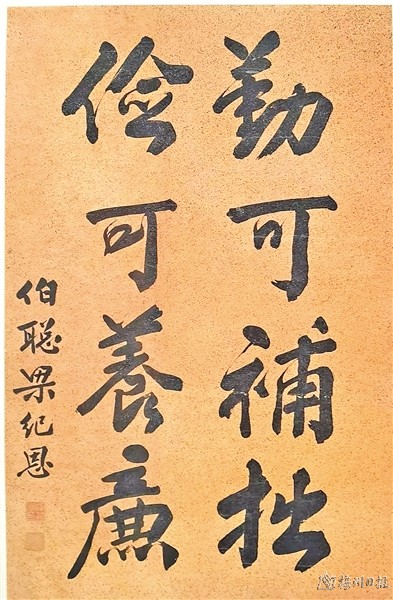 勤可補拙
儉可養廉
伯聪梁纪恩
梅州日报